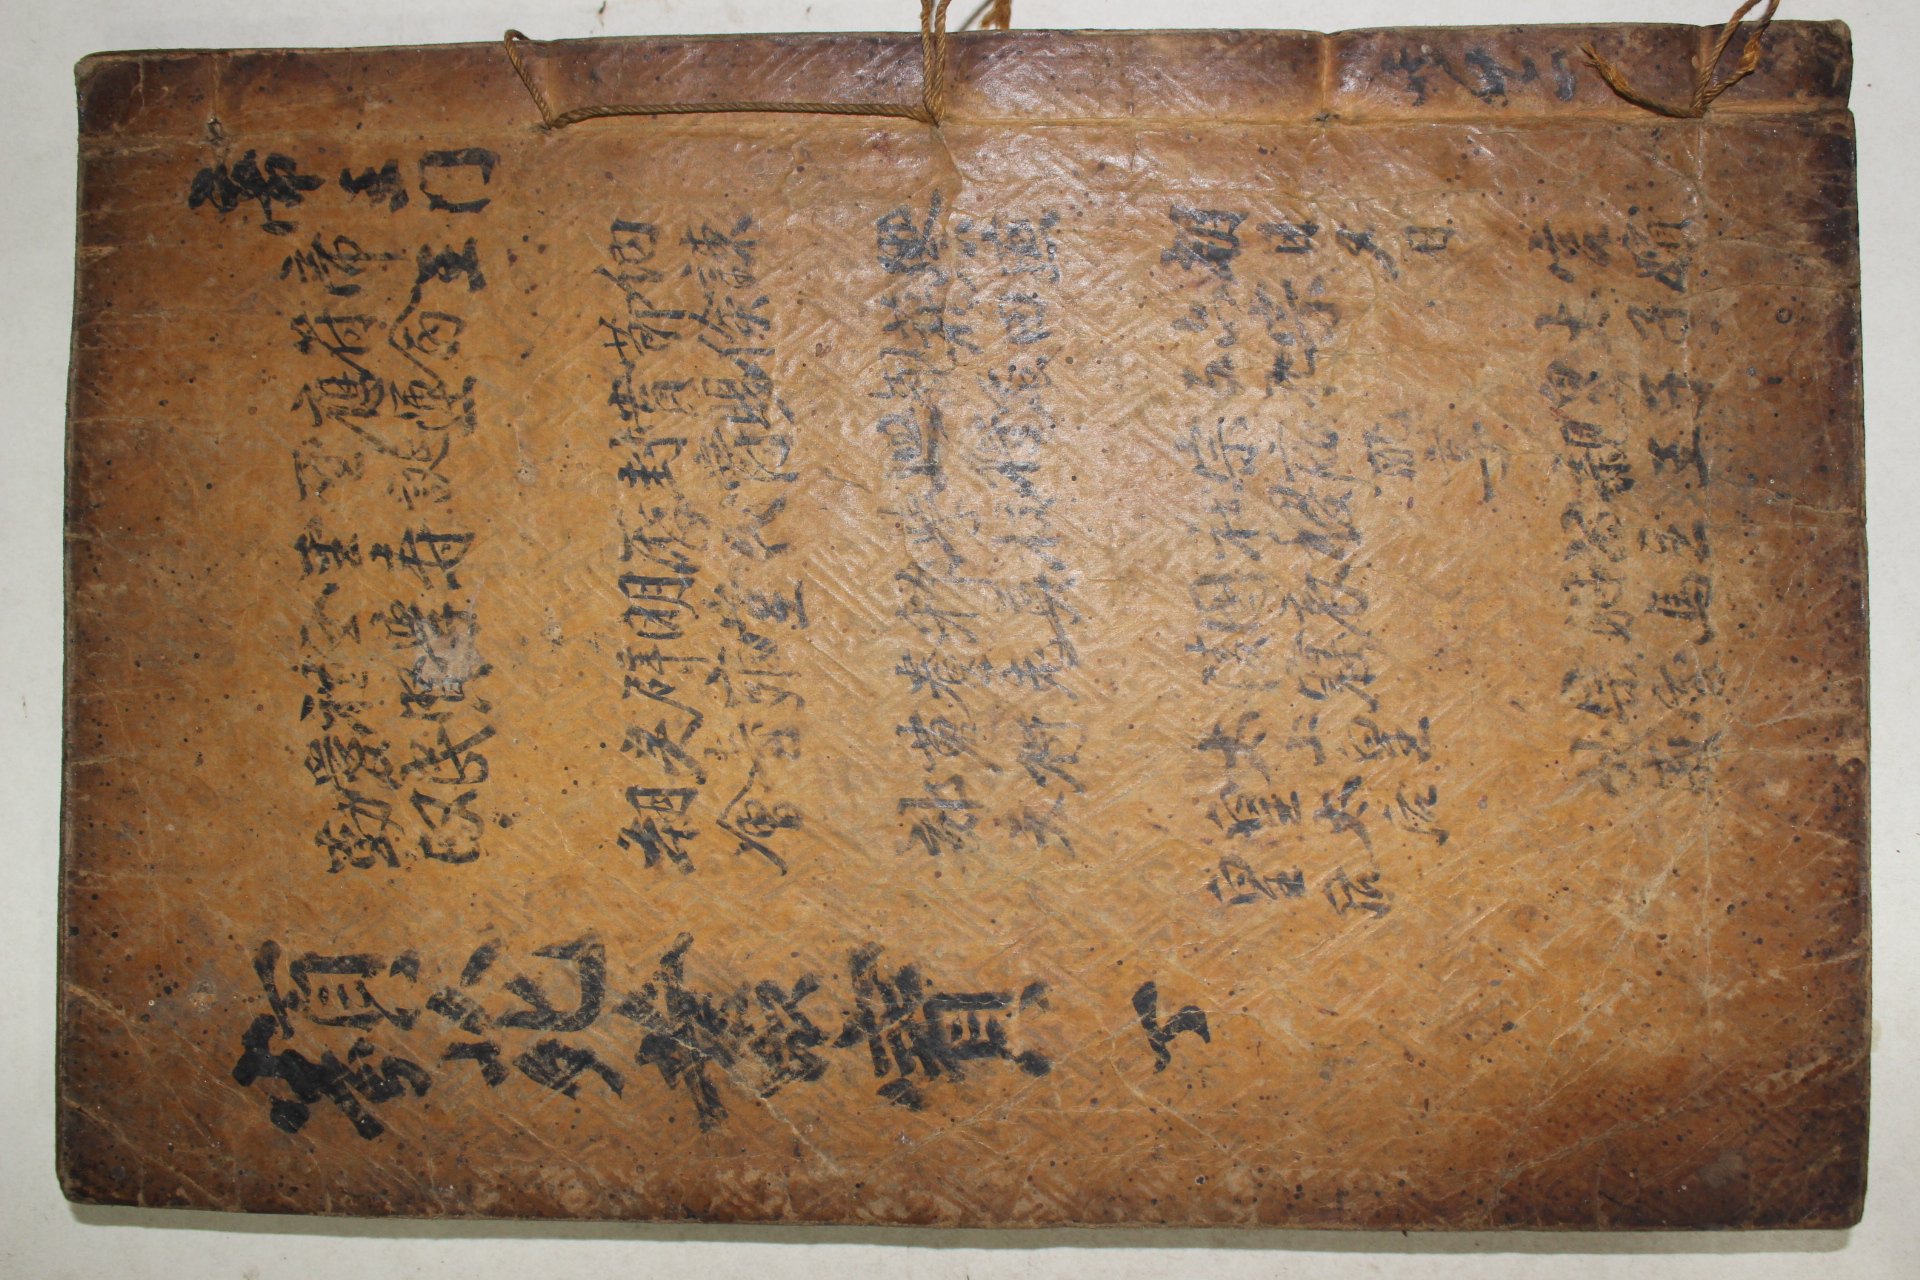 帝王門
帝王
符命
應運
聖誕
聖壽
聖學
禮賢
愛民
勤政
納諫
節儉
賞賜
封爵
歷代
明堂
辟雍
灵臺
朝會
郊天
養老
宮嬪
太子
皇子
親王
公主
駙馬
宗室
外戚
朝日夕月
六宗
宗廟配享
社稷
國哀
陵寢
太上皇
皇太后
皇后
類苑叢寶 丁